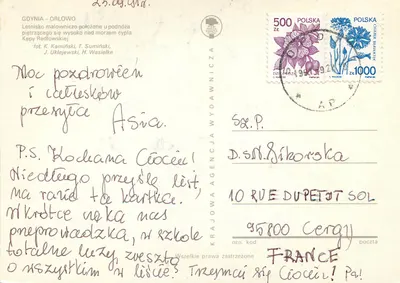 GDYNIA - ORŁOWO
Lesisko malowniczo położone u podnóża
piętrzącego się wysoko nad morzem cypla
Kępy Redłowskiej
fot. K. Kamiński, T. Sumiński,
J. Uklejewski, R. Wasielke
500
ZŁ
POLSKA
POLSKA
ZŁ
1000
KRAJOWA AGENCJA WYDAWNICZA
Moc pozdrowień
i całusków
przesyła Asia.
P.S. Kochana Ciociu!
Niedługo przyślę list,
na razie ta kartka.
Wkrótce czeka nas
przeprowadzka, w szkole
totalne luzy, zresztą
o wszystkim w liście! Trzymaj się Ciociu! Pa!
Sz.P.
D.S.N. Sikorska
10 RUE DUPETOT SOL
95800 Cergy
nr. kod
poczta
FRANCE
Wszelkie prawa zastrzeżone